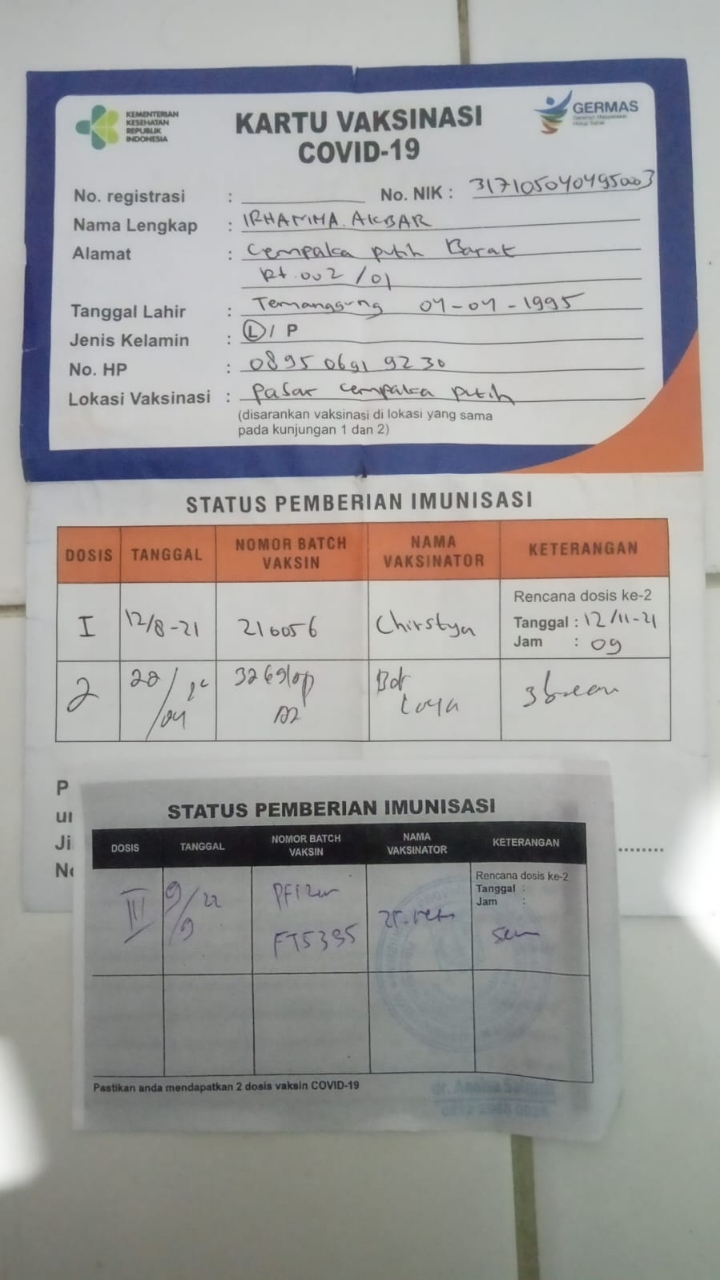 KEMENTERIAN
KESEHATAN
REPUBLIK
INDONESIA
KARTU VAKSINASI
COVID-19
GERMAS
No. registrasi : No. NIK : 3171050404950003
Nama Lengkap : IRHAMMA. AKBAR
Alamat : Cempaka putih Barat
Rt. 002 / 01
Tanggal Lahir : Temanggung 04-04-1995
Jenis Kelamin : L / P
No. HP : 0895 0691 9230
Lokasi Vaksinasi : Pasar cempaka putih
(disarankan vaksinasi di lokasi yang sama
pada kunjungan 1 dan 2)
STATUS PEMBERIAN IMUNISASI
DOSIS TANGGAL NOMOR BATCH VAKSIN NAMA VAKSINATOR KETERANGAN
Rencana dosis ke-2
I 12/8-21 210056 Chirstya Tanggal : 12/11-21
Jam : 09
2
P
Ji
STATUS PEMBERIAN IMUNISASI
DOSIS TANGGAL NOMOR BATCH VAKSIN NAMA VAKSINATOR KETERANGAN
Rencana dosis ke-2
Tanggal :
Jam :
III 9/9 22 Pfizer
FT5395
Pastikan anda mendapatkan 2 dosis vaksin COVID-19